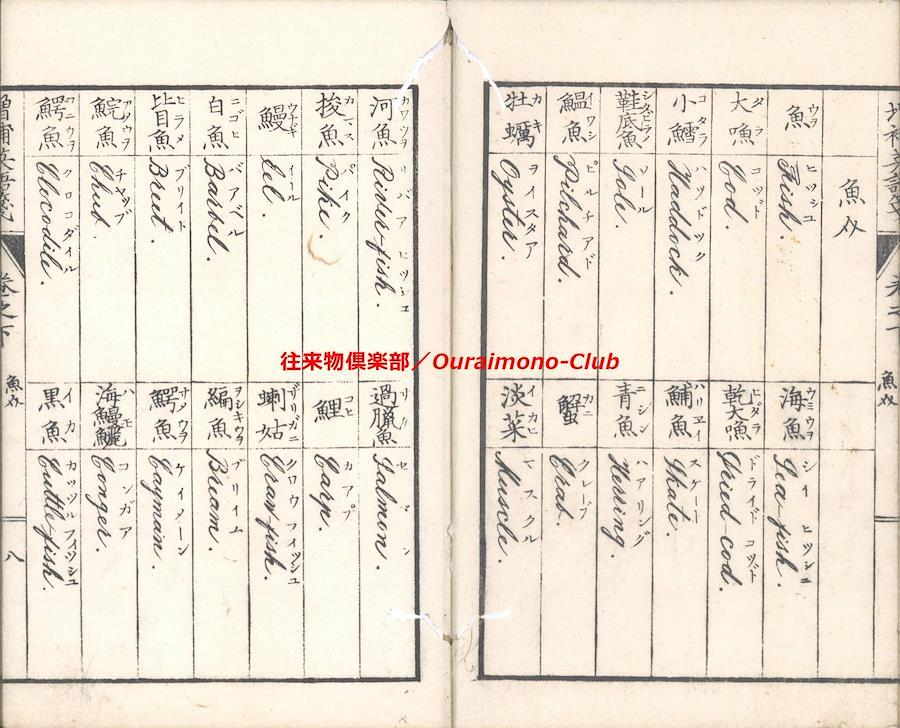 魚類
魚 ウヲ Fish. ヒツシユ
大魚 タラ Cod. コツト
小鱈 コタラ Haddock. ハツドツク
鞋底魚 シタビラメ Sole. ソール
鰮魚 イワシ Pilchard. ピルチアド
牡蠣 カキ Oyster. ヲイスタア
海魚 ウミウヲ Sea-fish. シイ ヒツシユ
乾大魚 ヒダラ Dried-cod. ドライド コツト
鯆魚 Skate. スケート
青魚 ニシン Herring. ハアリング
蟹 カニ Crab. クレーブ
淡菜 イカヒ Muscle. マスクル
往来物倶楽部／Ouraimono-Club
河魚 カワウヲ River-fish. リバア ヒツシユ
梭魚 カマス Pike. パイク
鰻 ウナギ Eel. イール
白魚 ニゴヒ Barbel. バアベル
ヒラメ Bret. ブリイト
鯇魚 Chub. チヤブ
鰐魚 ワニウヲ Crocodile. クロコダイル
過臘魚 Salmon. セマン
鯉 コヒ Carp. カアプ
蝲蛄 ザリガニ Craw-fish. クロウ フイツシユ
魚 ヲシキウヲ Bream. ブリイム
鰐魚 Cayman. ケイメーン
海鰻鱺 ハモ Conger. コンガア
黒魚 イカ Cuttle-fish. カツツル フイツシユ
増補英語箋
巻之下
魚類
八
巻之下
魚類